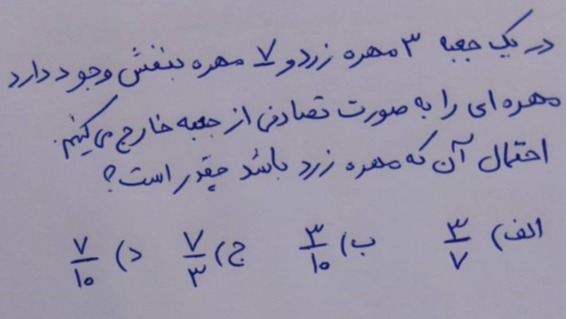 در یک جعبه ۳ مهره زرد و ۷ مهره بنفش وجود دارد
مهره ای را به صورت تصادفی از جعبه خارج می کنیم.
احتمال آن که مهره زرد باشد چقدر است؟
الف) ۳/۷ ب) ۳/۱۰ ج) ۷/۳ د) ۷/۱۰